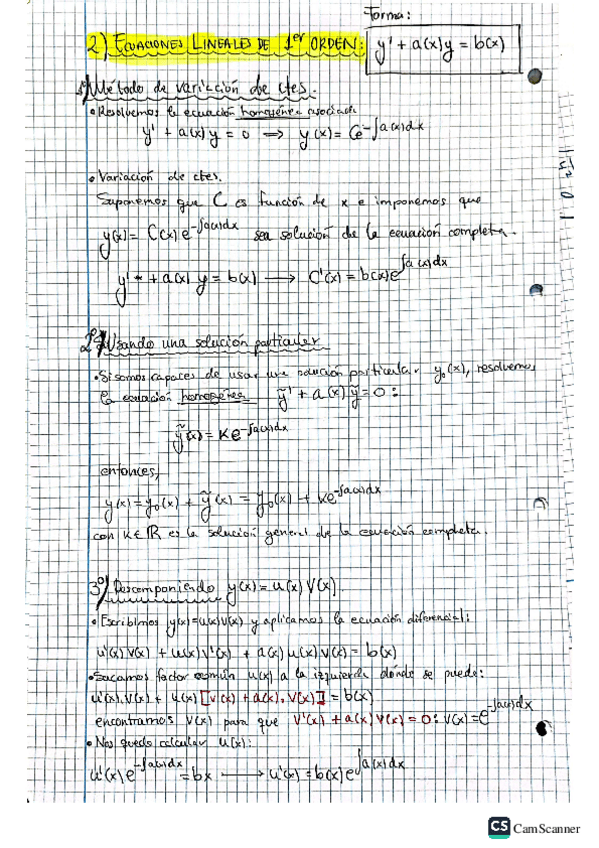 Forma:
2) ECUACIONES LINEALES DE 1er ORDEN: y' + a(x)y = b(x)
1º) Método de variación de ctes.
• Resolvemos la ecuación homogénea asociada
y' + a(x)y = 0 ⟹ y(x) = Ce^{-∫a(x)dx}
• Variación de ctes.
Suponemos que C es función de x e imponemos que
y(x) = C(x)e^{-∫a(x)dx} sea solución de la ecuación completa.
y' + a(x)y = b(x) ⟶ C'(x) = b(x)e^{∫a(x)dx}
2º) Usando una solución particular
• Si somos capaces de usar una solución particular y₀(x), resolvemos
la ecuación homogénea ỹ' + a(x)ỹ = 0:
ỹ(x) = Ke^{-∫a(x)dx}
entonces,
y(x) = y₀(x) + ỹ(x) = y₀(x) + Ke^{-∫a(x)dx}
con K∈ℝ es la solución general de la ecuación completa.
3º) Descomponiendo y(x) = u(x)V(x)
• Escribimos y(x) = u(x)V(x) y aplicamos la ecuación diferencial:
u'(x)V(x) + u(x)V'(x) + a(x)u(x)V(x) = b(x)
• Sacamos factor común u(x) a la izquierda dónde se puede:
u'(x).V(x) + u(x)[V'(x) + a(x).V(x)] = b(x)
encontramos V(x) para que V'(x) + a(x)V(x) = 0: V(x) = e^{-∫a(x)dx}
• Nos queda calcular u(x):
u'(x)e^{-∫a(x)dx} = bx ⟶ u'(x) = b(x)e^{∫a(x)dx}
CS CamScanner